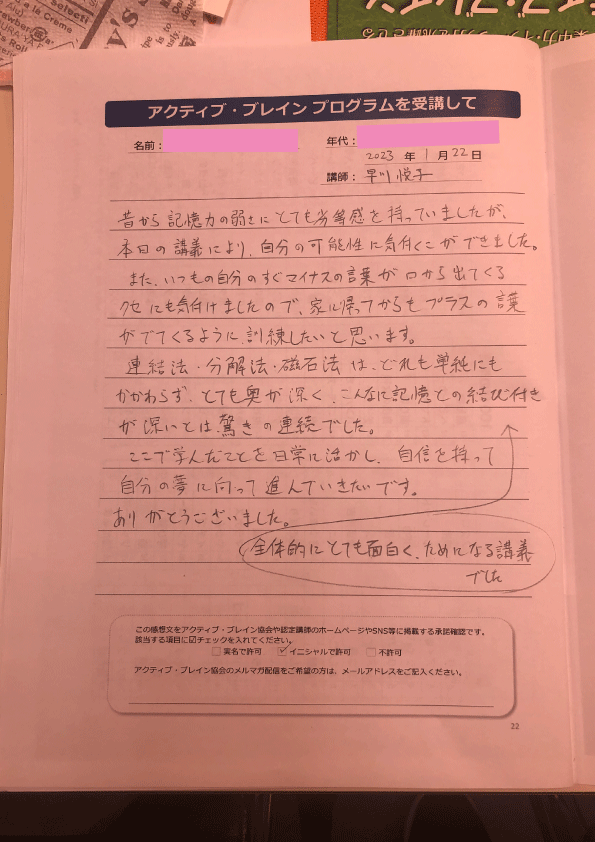 アクティブ・ブレイン プログラムを受講して
名前:
年代:
2023 年 1 月 22 日
講師: 早川 悦子
昔から記憶力の弱さにとても劣等感を持っていましたが、
本日の講義により、自分の可能性に気付くこができました。
また、いつもの自分のすぐマイナスの言葉が口から出てくる
クセにも気付けましたので、家に帰ってからもプラスの言葉
がでてくるように、訓練したいと思います。
連結法・分解法・磁石法は、どれも単純にも
かかわらず、とても奥が深く、こんなに記憶との結び付き
が深いとは驚きの連続でした。
ここで学んだことを日常に活かし、自信を持って
自分の夢に向って進んでいきたいです。
ありがとうございました。
全体的にとても面白く、ためになる講義
でした
この感想文をアクティブ・ブレイン協会や認定講師のホームページやSNS等に掲載する承諾確認です。
該当する項目に☑チェックを入れてください。
□ 実名で許可 ☑ イニシャルで許可 □ 不許可
アクティブ・ブレイン協会のメルマガ配信をご希望の方は、メールアドレスをご記入ください。
22